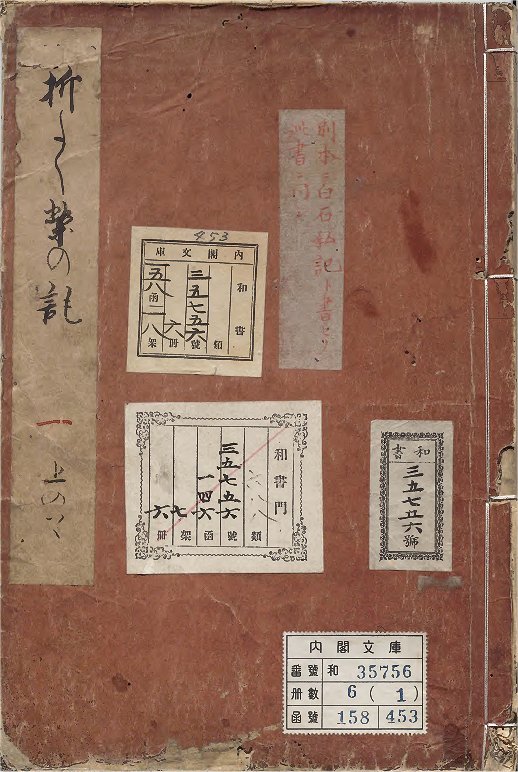 折たく柴の記
一
上の一
別本ニ白石私記ト書セリ
此書ニ同シ
453
內閣文庫
和書
類
三五七五六
號
六
冊
五八函
一八
架
和書門
類
三五七五六
號
一四六
函
七
架
六
冊
和書
三五七五六號
內閣文庫
番號 和 35756
冊數 6 ( 1 )
函號 158 453